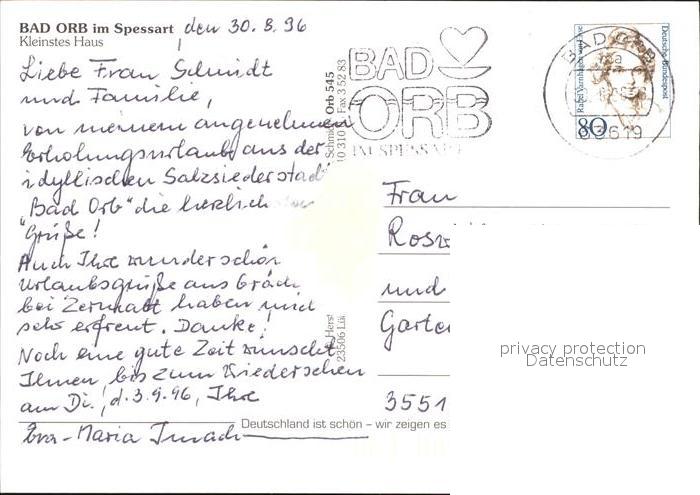 BAD ORB im Spessart den 30.8.96
Kleinstes Haus
Liebe Frau Schmidt
und Familie,
von meinem angenehmen
Erholungsurlaub aus der
idyllischen Salzsiederstadt
„Bad Orb“ die herzlichsten
Grüße!
Auch Ihre wunderschön
Urlaubsgrüße aus Gräch
bei Zermatt haben mich
sehr erfreut. Danke!
Noch eine gute Zeit wünscht
Ihnen bis zum Wiedersehen
am Di., d. 3.9.96, Ihre
Eva-Maria
BAD
ORB
IM SPESSART
BAD ORB
63619
Rahel Varnhagen von Ense
Deutsche Bundespost
80
Orb 545
Fax 3 52 83
10 310
23506 Lü
Frau
Ros
und
Garte
3551
Deutschland ist schön – wir zeigen es
privacy protection
Datenschutz